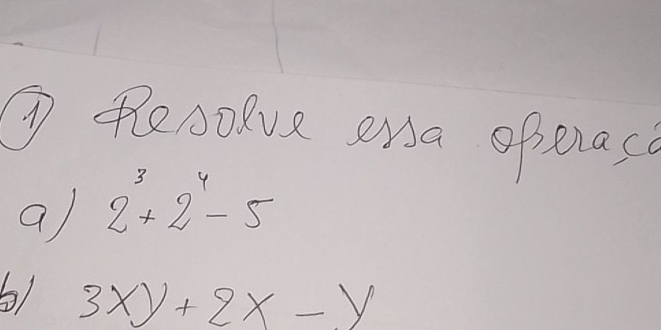 1 Resolve essa operaçã
a) 2³ + 2⁴ - 5
b) 3xy + 2x - y